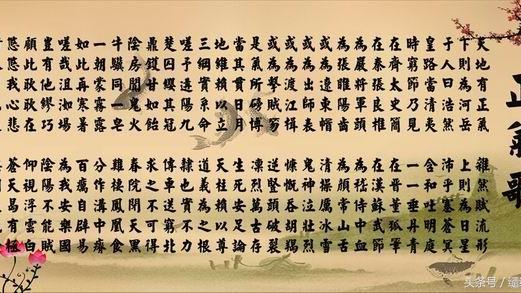 正氣歌
天地有正氣 雜然賦流形
下則為河岳 上則為日星
于人曰浩然 沛乎塞蒼冥
皇路當清夷 含和吐明庭
時窮節乃見 一一垂丹青
在齊太史簡 在晉董狐筆
在秦張良椎 在漢蘇武節
為嚴將軍頭 為嵇侍中血
為張睢陽齒 為顏常山舌
或為遼東帽 清操厲冰雪
或為出師表 鬼神泣壯烈
或為渡江楫 慷慨吞胡羯
或為擊賊笏 逆豎頭破裂
是氣所磅礡 凜烈萬古存
當其貫日月 生死安足論
地維賴以立 天柱賴以尊
三綱實系命 道義為之根
嗟予遘陽九 隸也實不力
楚囚纓其冠 傳車送窮北
鼎鑊甘如飴 求之不可得
陰房闃鬼火 春院閉天黑
牛驥同一皂 雞棲鳳凰食
一朝蒙霧露 分作溝中瘠
如此再寒暑 百沴自辟易
嗟哉沮洳場 為我安樂國
豈有他繆巧 陰陽不能賊
顧此耿耿在 仰視浮雲白
悠悠我心悲 蒼天曷有極
头条号